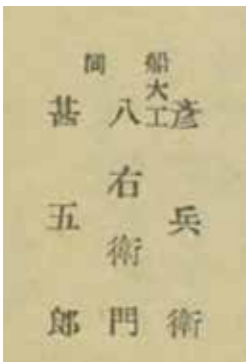 船大工
彦兵衛
八右衛門
同
甚五郎